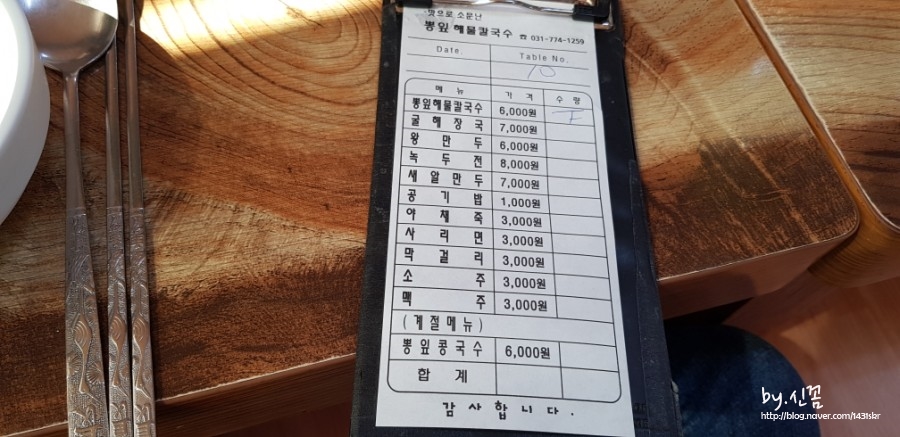 ·맛으로 소문난
뽕잎 해물칼국수 ☎ 031-774-1259
Date. Table No.
10
메 뉴 가 격 수 량
뽕잎해물칼국수 6,000원
굴 해 장 국 7,000원
왕 만 두 6,000원
녹 두 전 8,000원
새 알 만 두 7,000원
공 기 밥 1,000원
야 채 죽 3,000원
사 리 면 3,000원
막 걸 리 3,000원
소 주 3,000원
맥 주 3,000원
(계절메뉴)
뽕잎콩국수 6,000원
합 계
감 사 합 니 다 .
by.신꼼
http://blog.naver.com/1431skr